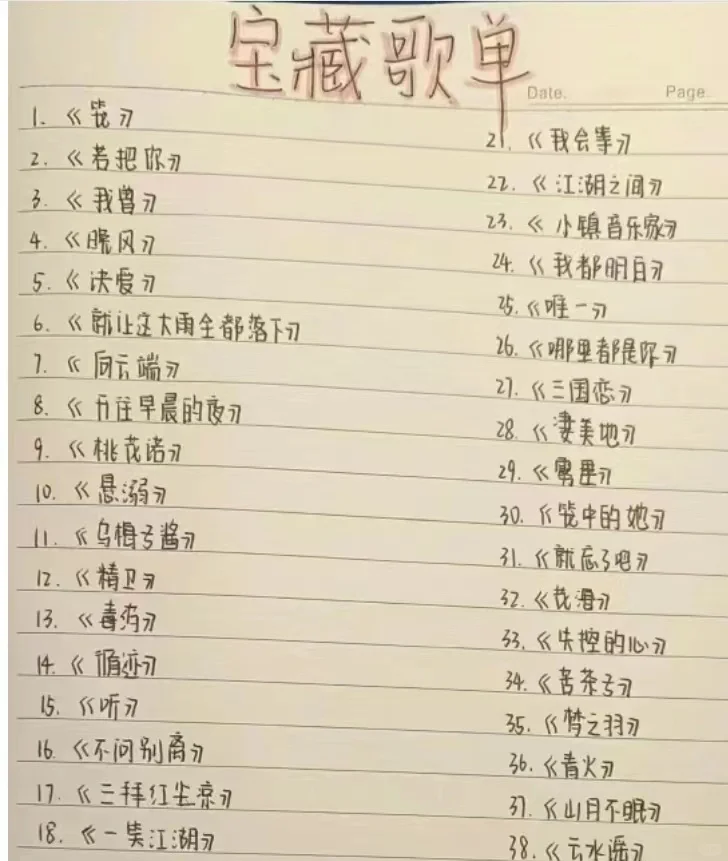 宝藏歌单
Date.
Page.
1. 《笼》
2. 《若把你》
3. 《我曾》
4. 《晚风》
5. 《决爱》
6. 《就让这大雨全都落下》
7. 《向云端》
8. 《开往早晨的夜》
9. 《桃花诺》
10. 《悬溺》
11. 《乌梅子酱》
12. 《精卫》
13. 《毒药》
14. 《循迹》
15. 《听》
16. 《不问别离》
17. 《三拜红尘凉》
18. 《一笑江湖》
21. 《我会等》
22. 《江湖之间》
23. 《小镇音乐家》
24. 《我都明白》
25. 《唯一》
26. 《哪里都是你》
27. 《三国恋》
28. 《凄美地》
29. 《雾里》
30. 《笼中的她》
31. 《就忘了吧》
32. 《花海》
33. 《失控的心》
34. 《苦茶子》
35. 《梦之羽》
36. 《青火》
37. 《山月不眠》
38. 《云水谣》